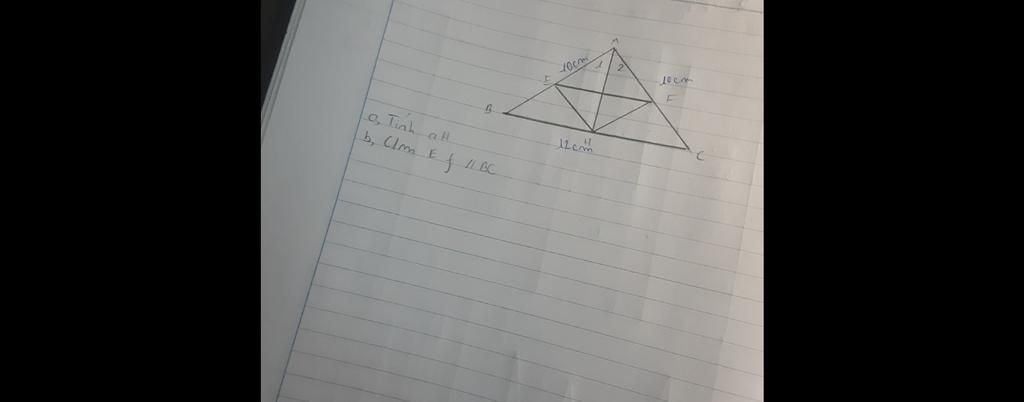 A
10cm
1 2
10cm
E
F
B
H
12cm
C
a, Tính aH
b, C/m E f // BC